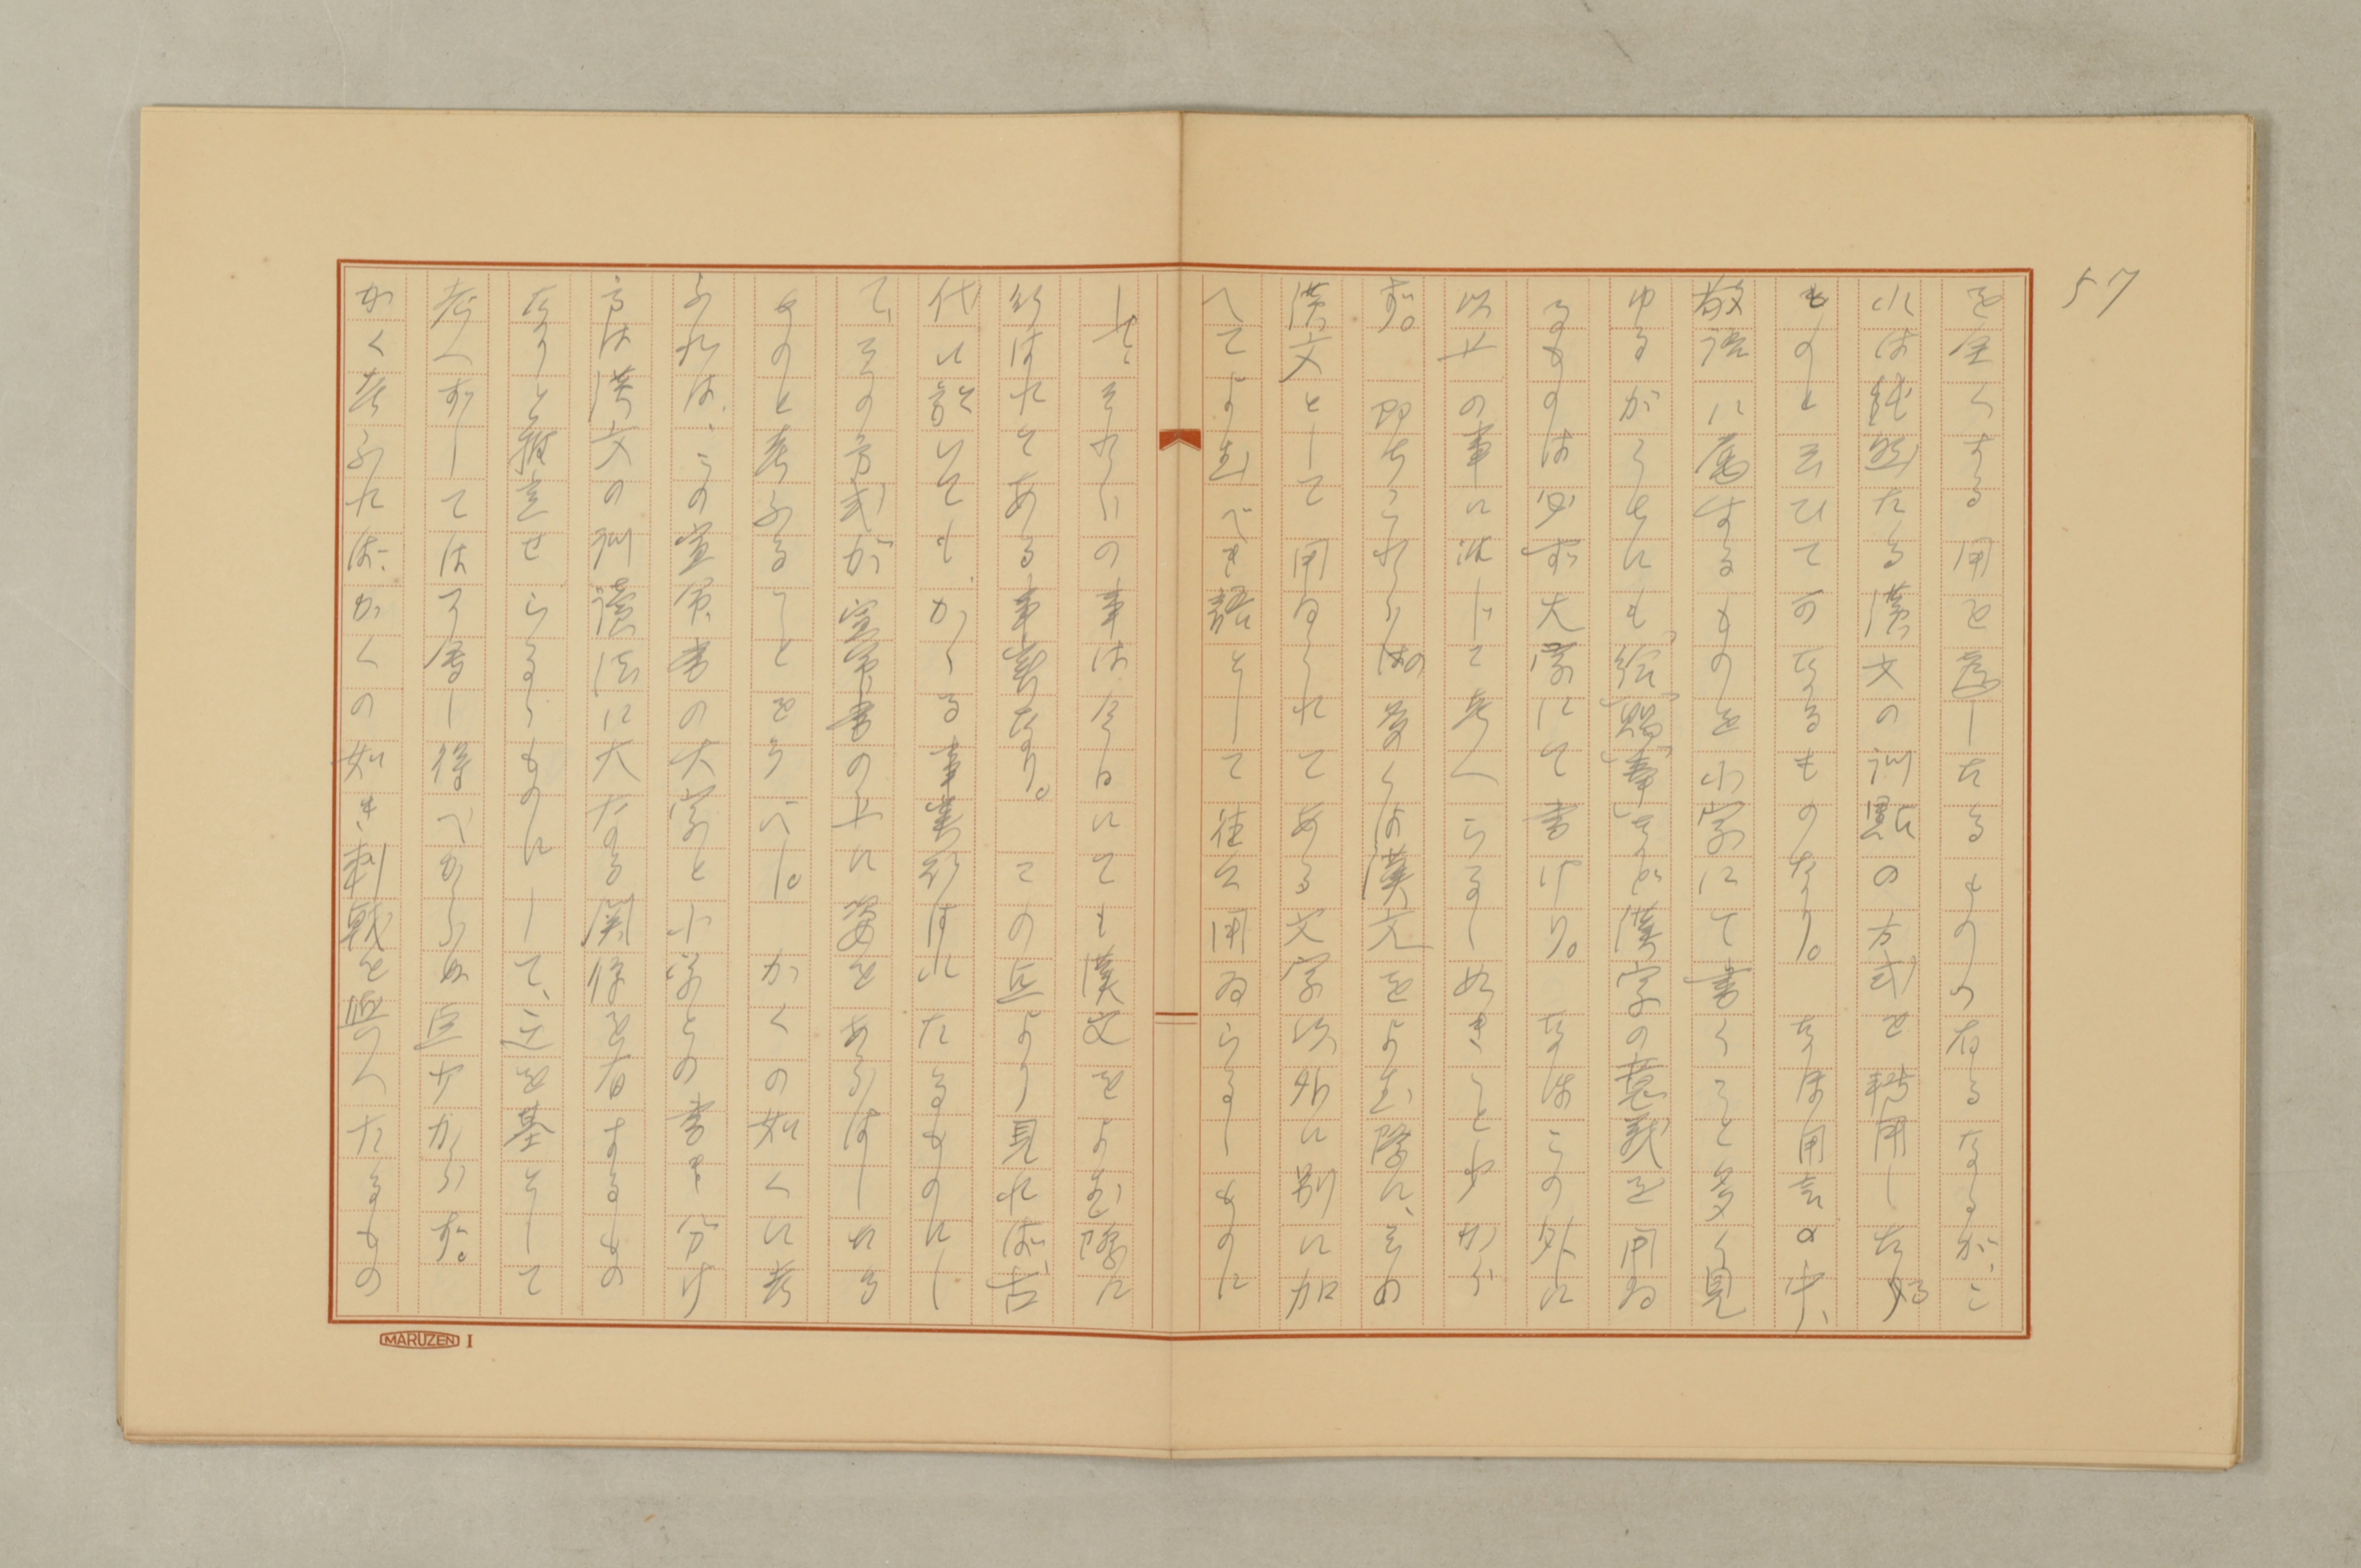 57
を全くする用を為したるものゝ存るなるが、こ
れは純然たる漢文の訓點の方式を轉用したる
ものと云ひて可なるものなり。なほ用言の中、
敬語に属するものを小字にて書くこと多く見
ゆるがうちにも「給」「賜」「奉」等が漢字の意義を用ゐ
るものは必ず大字にて書けり。なほこの外に
以上の事に准じて考へらるしめきこと少から
ず。即ちこれらの多くは漢文をよむ際に、その
漢文として用ゐられてある文字以外に別に加
へてよむべき語として往々用ゐらるゝものに
して、それらの事は今日にても漢文をよむ際に
行はれてある事実なり。この点より見れば、古
代に於いても、かゝる事実行はれたるものにし
て、その方式が宣命書の上に姿をあらはしゐる
ものと考ふることをうべし。かくの如くに考
ふれば、この宣命書の大字と小字との書き分け
方は漢文の訓讀法に大なる関係を有するもの
なりと推定せらるゝものにして、之を基として
考へずしては了解し得べからぬ点少からず。
かく考ふれば、かくの如き刺戟を與へたるもの
MARUZEN I